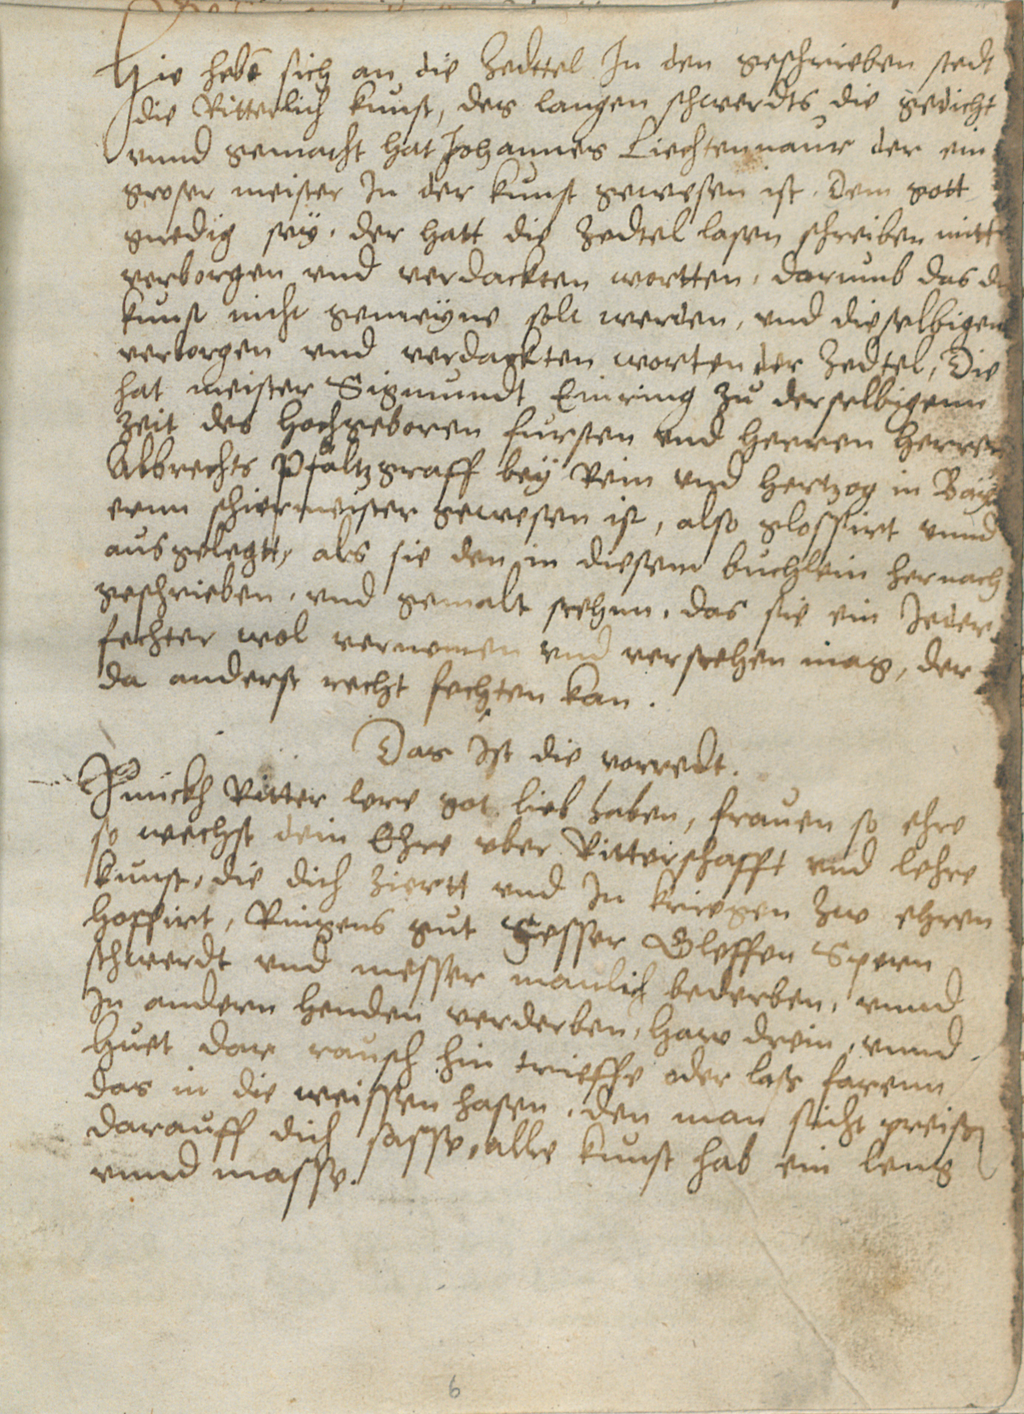 Hie hebt sich an die Zedttel In den geschrieben stedt
die Ritterlich kunst, des langen schwerdts die gedicht
vnnd gemacht hat Johannes Liechtennaur der ein
groser meister In der kunst gewesen ist. Dem gott
gnedig seÿ. der hatt die Zedtel lasen schreiben mitt
verborgen vnd verdackten wortten, darumb das di
kunst nicht gemeÿne solt werden, vnd dieselbigen
verborgen vnd verdackten worten der Zedtel, Die
hat meister Sigmundt Einring zu derselbigenn
Zeit des hochgeboren fursten vnd herren herren
Albrechts Pfaltzgraff beÿ Rein vnd hertzog in Baÿ
ernn schirmeister gewesen ist, also glossirt vnnd
ausgelegtt, als sie den in diesem buchlein hernach
geschrieben. vnd gemalt stehnn. das sie ein Jeder
fechter wol vernomen vnd verstehen mag, der
da anderst recht fechten kan.
Das Ist die vorredt.
Junckh Ritter lere got lieb haben, frauen so ehre
so wechst dein Ehre vber Ritterschafft vnd lehre
kunst, die dich Ziertt vnd In kriegen zw ehren
hoffirt, Ringens gut fesser Gleffen Speren
schwerdt vnd messer manlich bederben, vnnd
In anderen henden verderben, haw drein, vnnd
huet dar rausch hin trieffe oder lass farenn
das in die weissen hasen, den man sicht preisen
darauff dich fasse, alle kunst hab ein leng
vnnd masse.
6